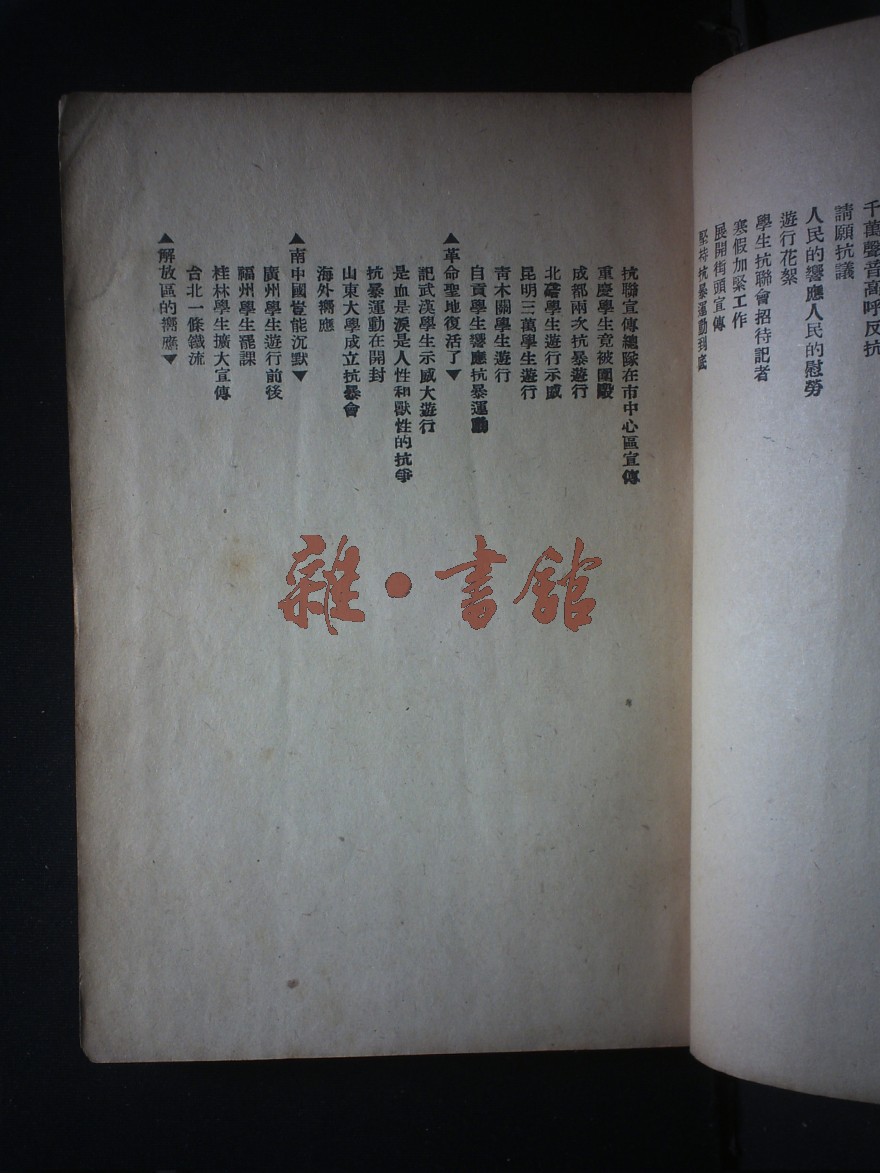 千萬聲音高呼反抗
請願抗議
人民的響應人民的慰勞
遊行花絮
學生抗聯會招待記者
寒假加緊工作
展開街頭宣傳
堅持抗暴運動到底
抗聯宣傳總隊在市中心區宣傳
重慶學生竟被圍毆
成都兩次抗暴遊行
北碚學生遊行示威
昆明三萬學生遊行
青木關學生遊行
自貢學生響應抗暴運動
▲革命聖地復活了▼
記武漢學生示威大遊行
是血是淚是人性和獸性的抗爭
抗暴運動在開封
山東大學成立抗暴會
海外響應
▲南中國豈能沉默▼
廣州學生遊行前後
福州學生罷課
桂林學生擴大宣傳
台北一條鐵流
▲解放區的響應▼
雜·書館